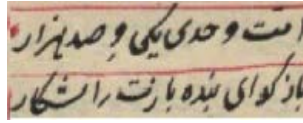 امت و حدی یکی و صد هزار
باز کو ای بنده بازت را شکار